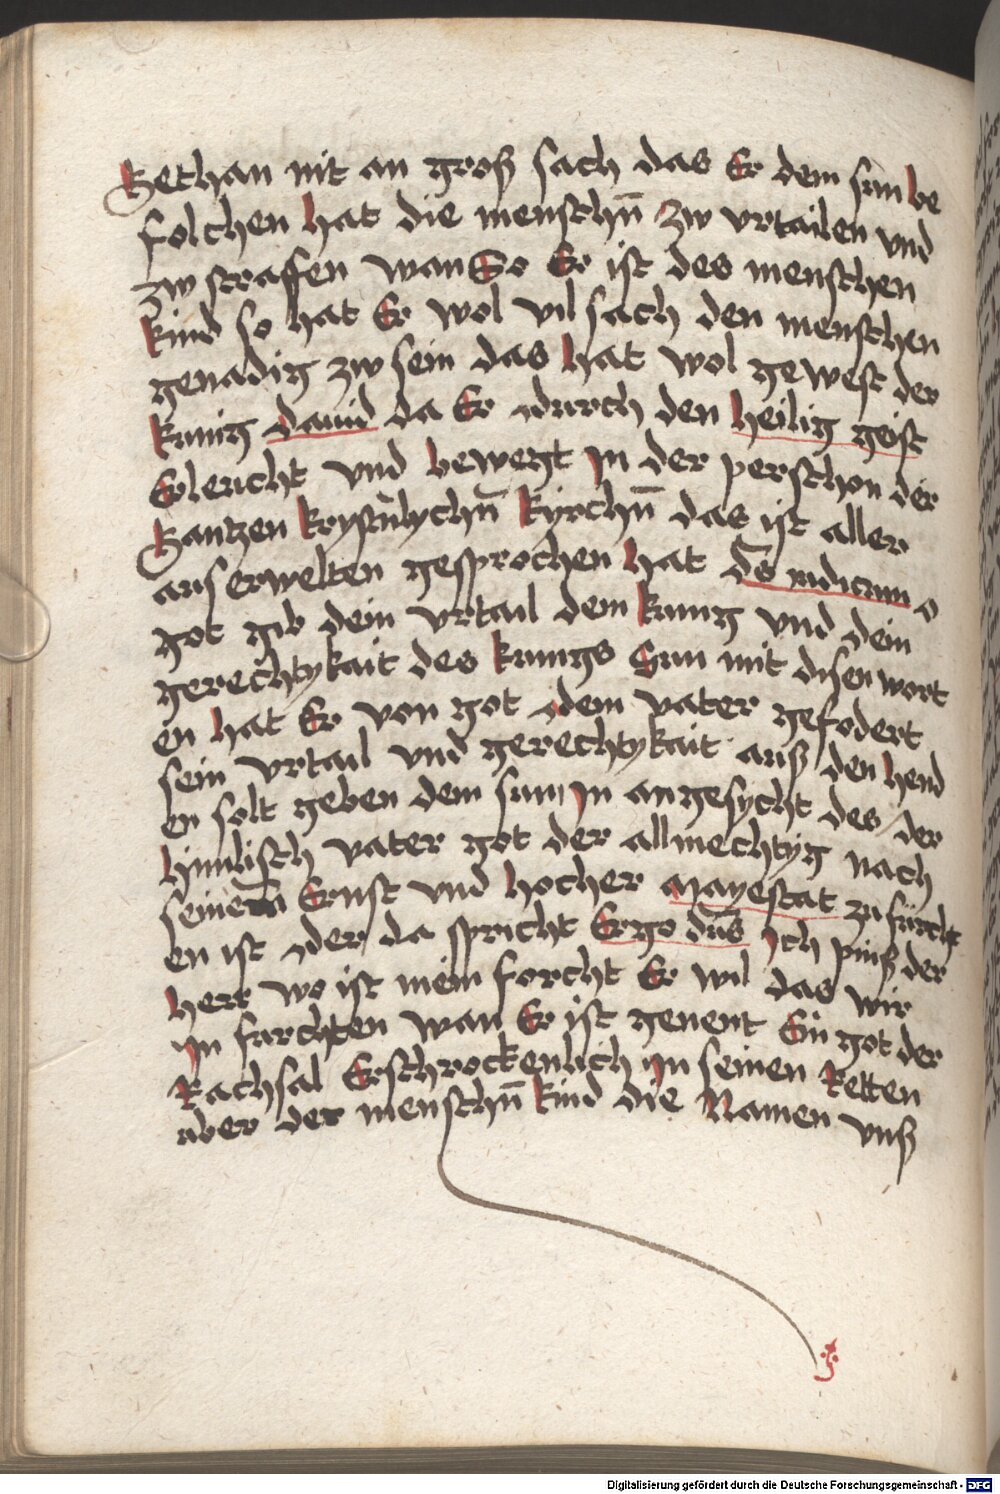 Gethan nit an groß sach das Er dem sun be
folchen hat die menschn̄ zw vrtailen vnd
zw straffen wan So Er ist des menschen
kind so hat Er wol vil sach den menschen
genadig zw sein das hat wol gewest der
kunig dauid da Er durch den heilig geist
Erleucht vnd bewegt jn der perschon der
Gantzen krystūlychn̄ kyrchn̄ das ist aller
auserwelten gesprochen hat ds̄ iudicium o
got gib dein vrtail dem kunig vnd dein
gerechtykait des kunigs Sun mit disen wort
en hat Er von got dem vater gefodert
sein vrtail vnd gerechtykait auß den hend
en solt geben dem sun jn angesycht des der
himlisch vater got der allmechtyg nach
seinem Ernst vnd hocher Mayestat zu fürcht
en ist der da spricht Ergo dn̄s Ich pinß der
herr wo ist mein forcht Er wil das wir
jn furchten wan Er ist genent Ein got der
Rachsal Erschrockenlich jn seinen Retten
aber der menschn̄ kind die Namen vnß
Digitalisierung gefördert durch die Deutsche Forschungsgemeinschaft - DFG